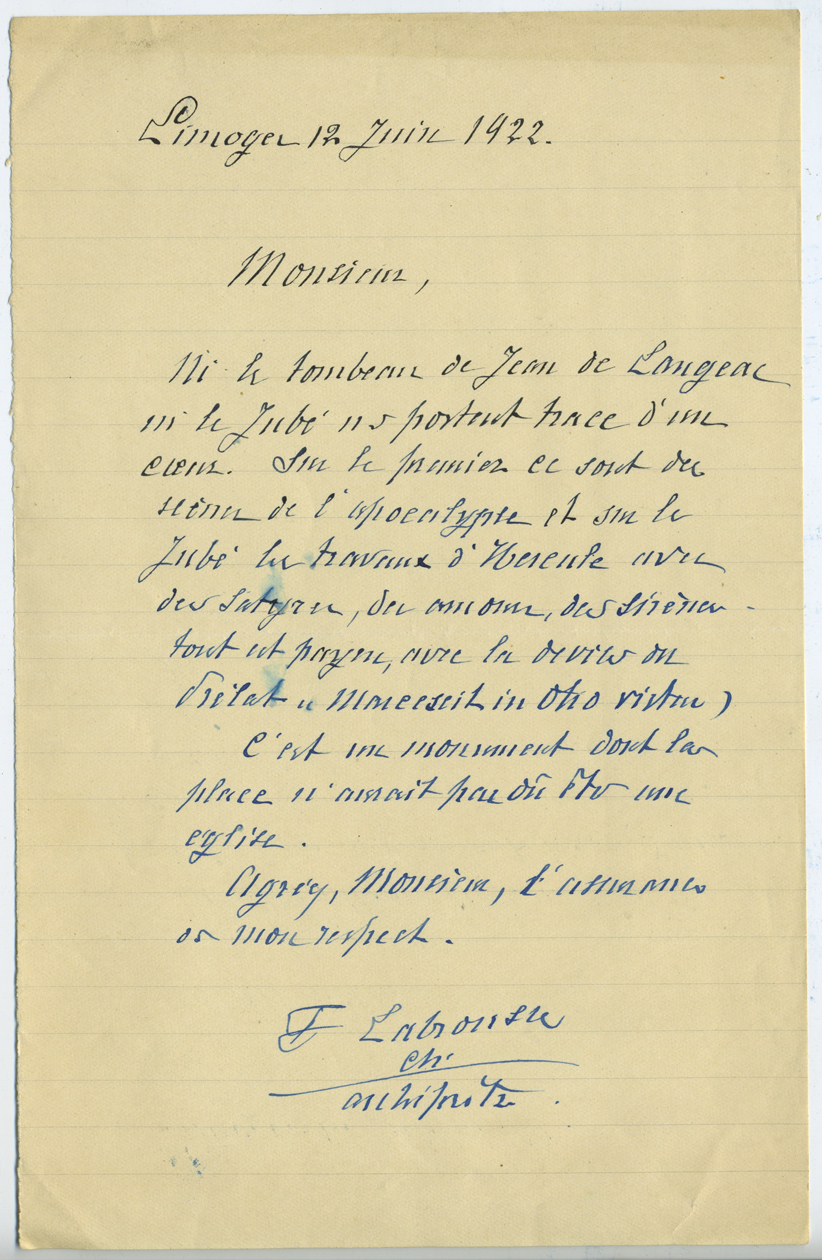 Limoges 12 Juin 1922.
Monsieur,
Ni le tombeau de Jean de Langeac
ni le Jubé ne portent trace d'un
cœur. Sur le premier ce sont des
scènes de l'apocalypse et sur le
Jubé les travaux d'Hercule avec
des satyres, des amours, des sirènes -
tout est payen, avec la devise du
Prélat « Marcescit in Otio virtus )
C'est un monument dont la
place n'aurait pas dû être une
eglise.
Agréez, Monsieur, l'assurance
de mon respect.
F Labrousse
ch.
archiprêtre.